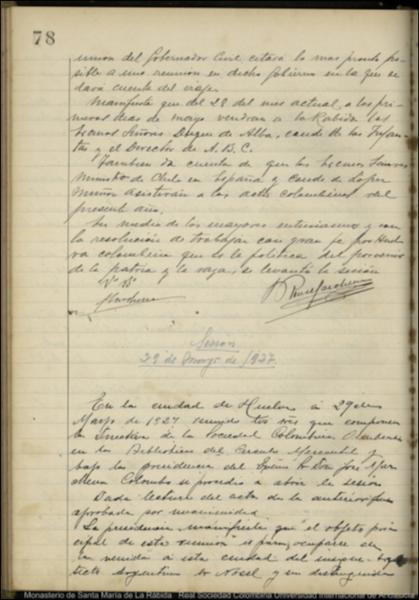 78
unión del Gobernador Civil, citará lo mas pronto po-
sible a una reunion en dicho Gobierno en la que se
dará cuenta del viaje.
Manifiesta que del 28 del mes actual, a los pri-
meros dias de mayo vendran a la Rabida los
Excmos Señores Duque de Alba, conde de los Infan-
tas y el Director de A.B.C.
Tambien da cuenta de que los Excmos Señores
Ministro de Chile en España y Conde de Lopez
Muñoz asistirán a los actos colombinos del
presente año.
En medio de los mayores entusiasmos y con
la resolucion de trabajar con gran fe por Huel-
va colombina que es la politica del porvenir
de la patria y la raza, se levantó la sesión
Vº Bº
Sesión
29 de Marzo de 1927.
En la ciudad de Huelva á 29 de
Marzo de 1927 reunidos los sres que componen
la Directiva de la Sociedad Colombina Onubense
en la Biblioteca del Circulo Mercantil y
bajo la presidencia del Don José Mar-
chena Colombo se procedio a abrir la sesión
Dada lectura del acta de la anterior fue
aprobada por unanimidad
La presidencia manifiesta que el objeto prin-
cipal de esta reunión es para ocuparse de
la venida á esta ciudad del insigne arqui-
tecto Argentino Sr Noel y su distinguida
Monasterio de Santa María de La Rábida. Real Sociedad Colombina. Universidad Internacional de Andalucía